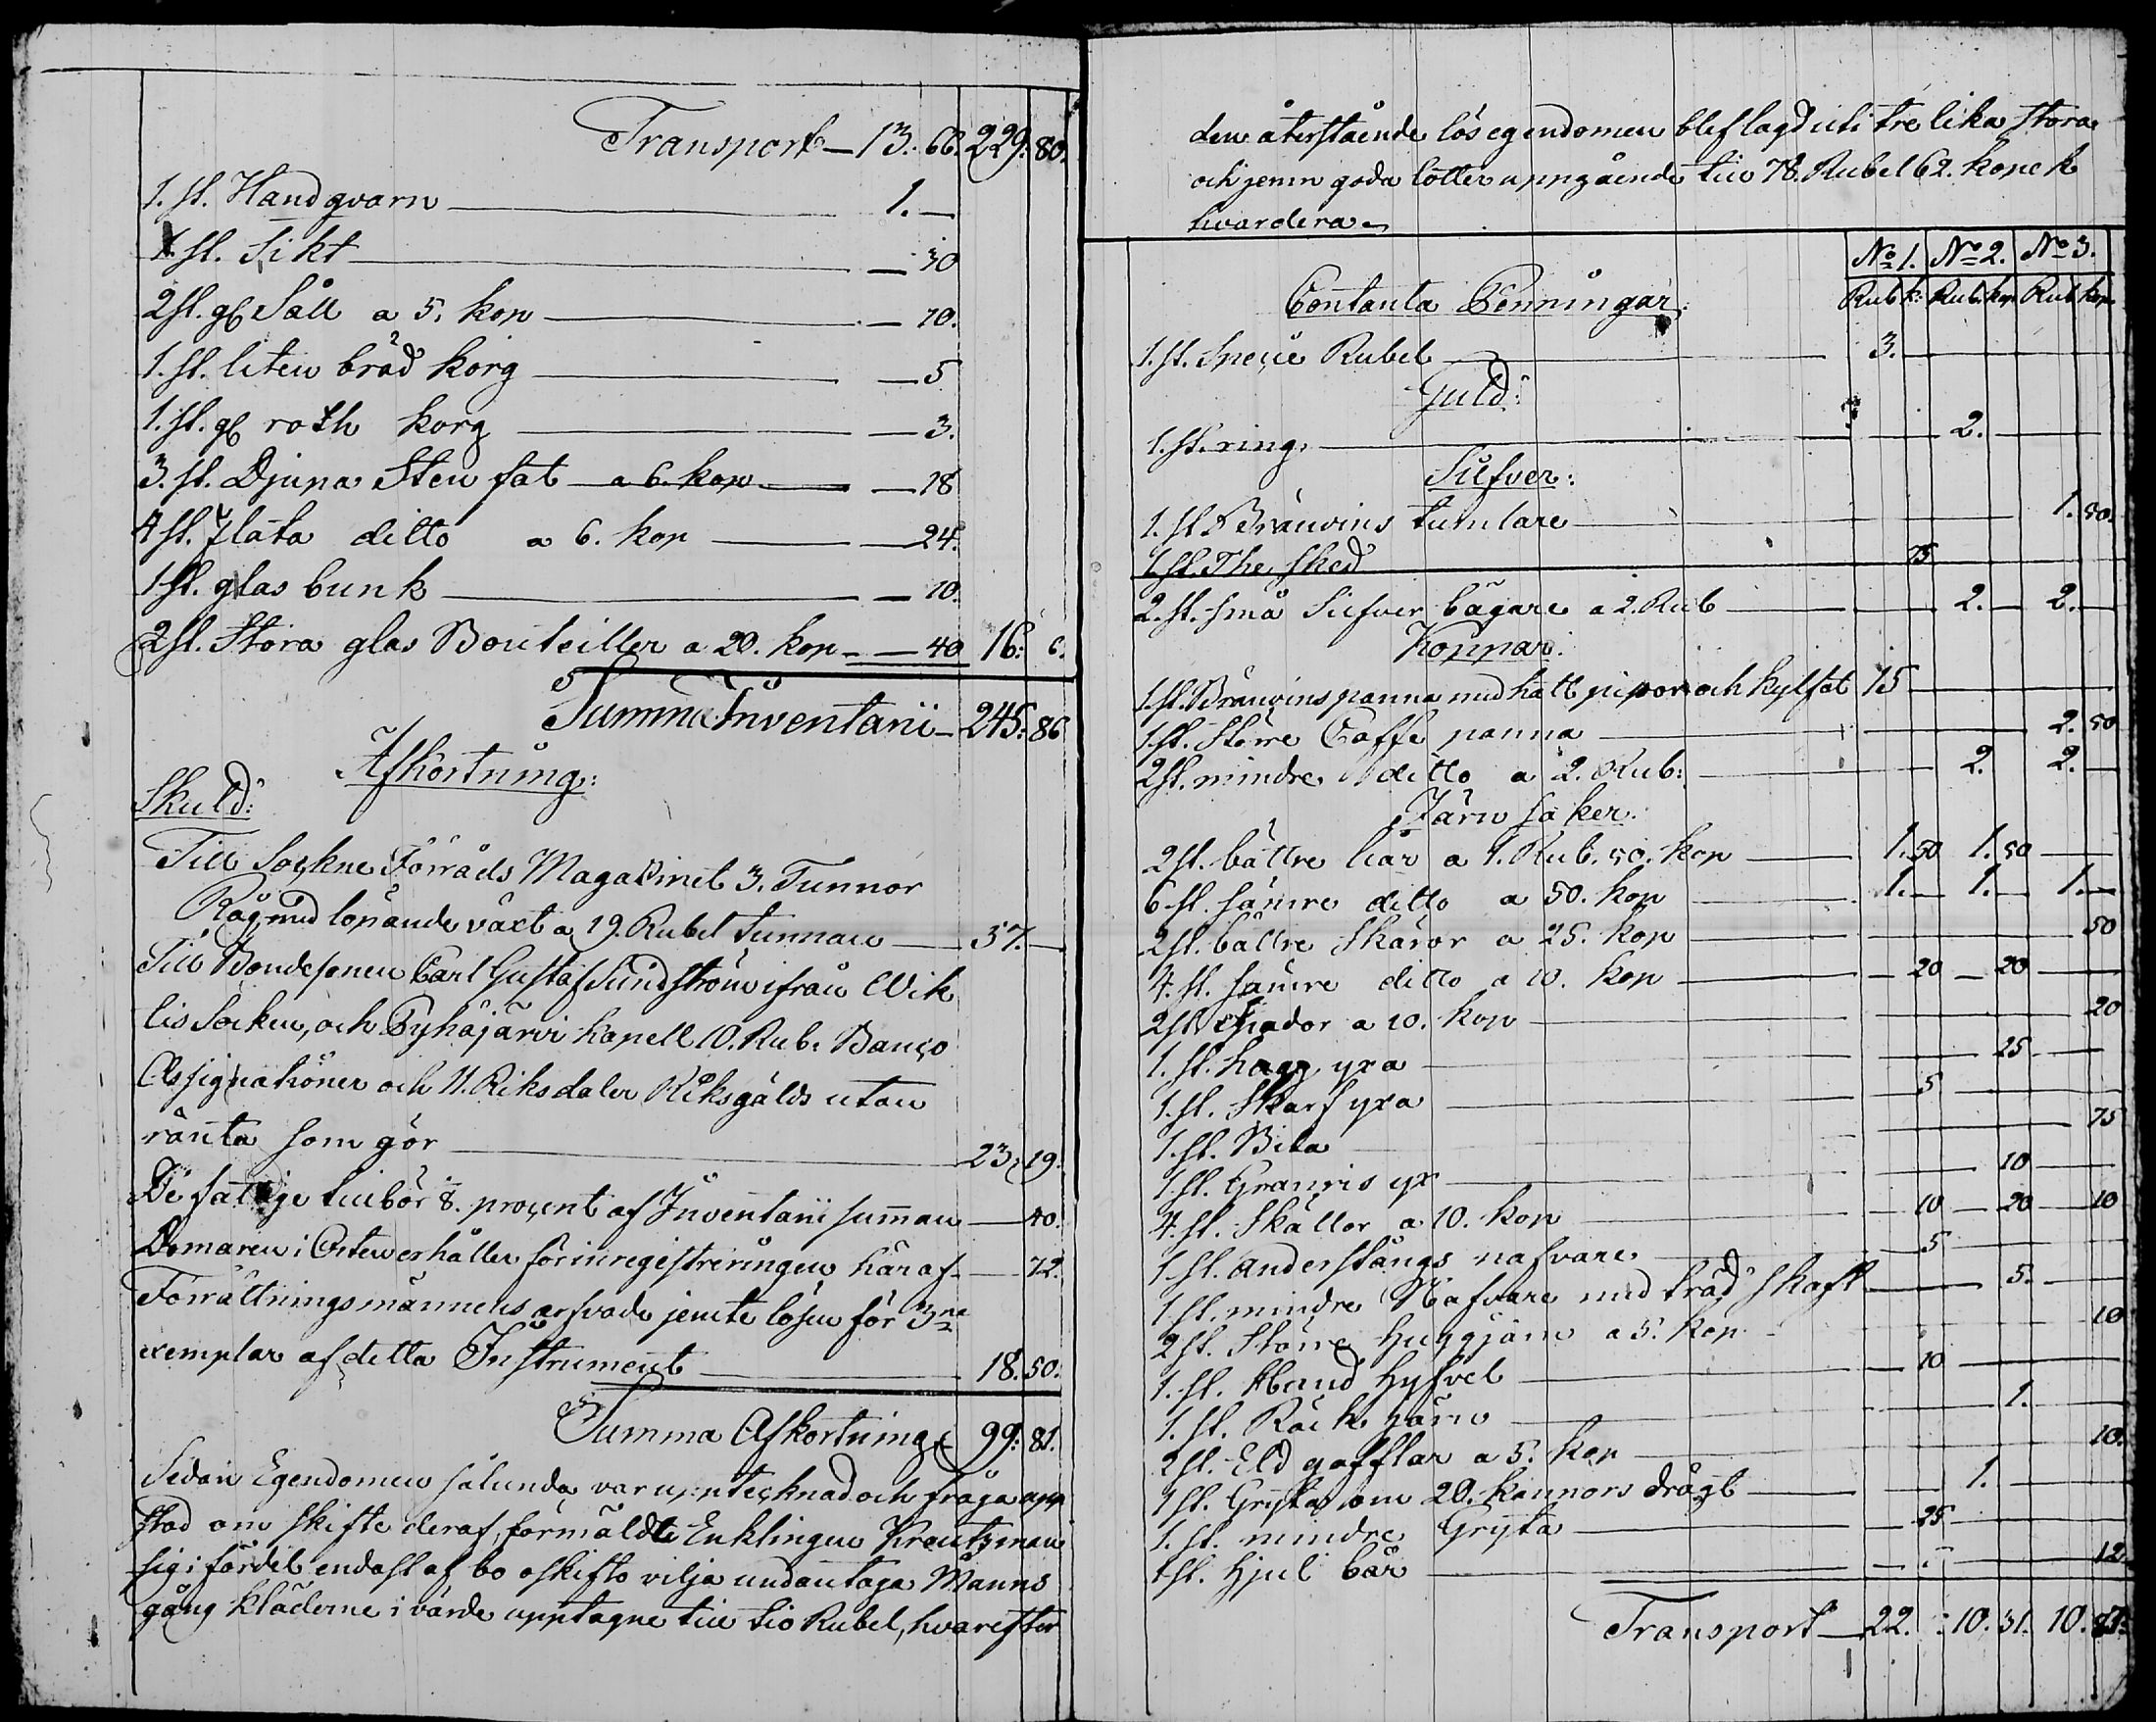 Transport — 13. 66. 229. 80.
1. st. Handqvarn — 1. —
1. st. Sikt — 30
2 st. gl Såll a 5. kop — 10.
1. st. liten bröd korg — 5
1. st. gl roth korg — 3.
3. st. Djupa Sten fat a 6. kop — 18
4 st. flata ditto a 6. kop — 24.
1 st. glas bunk — 10.
2 st. Stora glas Bouteiller a 20. kop — 40 16: 6.
Summa Inventarii — 245: 86
Afkortning:
Skuld:
Till Sockne Förråds Magasinet 3. Tunnor
Råg med löpande växt a 19. Rubel tunnan — 57. —
Till Bondesonen Carl Gustaf Sundström ifrån Wih
tis Socken, och Pyhäjärvi kapell 10. Rub. Banco
Assignationer och 11. Riksdaler Riksgälds utan
ränta som gör — 23. 19.
De fattige tillbör 1/8. procent af Inventarii summan — 40.
Domaren i Orten erhåller för inregistreringen häraf — 72.
Förrättningsmännens arfvode jemte lösen för 3ne
exemplar af detta Instrument — 18. 50.
Summa Afkortning 99: 81.
Sedan Egendomen sålunda var upptecknad och fråga upp
stod om skifte deraf, förmälde Enklingen Kreutzman
sig i fördel endast af bo oskifto vilja undantaga Manns
gång kläderne i värde upptagne till tio Rubel, hvarefter
den återstående lös egendomen blef lagd uti tre lika stora
och jemn goda lotter uppgående till 78. Rubel 62. kopek
hvardera.
No 1. No 2. No 3.
Rub k: Rub. kop Rub kop.
Contanta Penningar:
1. st. Specie Rubel — 3. —
Guld:
1. st. ring. — 2. —
Silfver:
1. st Bränvins tumlare — 1. 50.
1 st. The sked — 75
2. st. små Silfver bägare a 2. Rub — 2. — 2. —
Koppar:
1 st. Bränvins panna med hatt pipor och kylfat 15 —
1 st. Större Caffe panna — 2. 50
2 st. mindre ditto a 2. Rub: — 2. 2. —
Järn saker:
2 st. bättre liar a 1. Rub. 50. kop — 1. 50 1. 50 —
6 st. sämre ditto a 50. kop — 1. — 1. — 1. —
2 st. bättre Skäror a 25. kop — 50
4. st. sämre ditto a 10. kop — 20 — 20 —
2 st. Spador a 10. kop — 20
1. st. hugg yxa — 25 —
1. st. Skarf yxa — 5 —
1. st. Bila — 75
1 st. Granris yx — 10 —
4. st. Skällor a 10. kop — 10 — 20 — 10
1 st. anderstångs nafvare — 5 —
1 st. mindre Nafvare med träd skaft — 5. —
2 st. Större huggjärn a 5. kop — 10
1. st. Hand Hyfvel — 10 —
1. st. Räck järn — 1. —
2 st. Eld gafflar a 5. kop — 10.
1 st. Gryta om 20. kannors drägt — 1. —
1. st. mindre Gryta — 25 —
1 st. Hjul bår — 12
Transport — 22. : 10. 31. 10. 87.